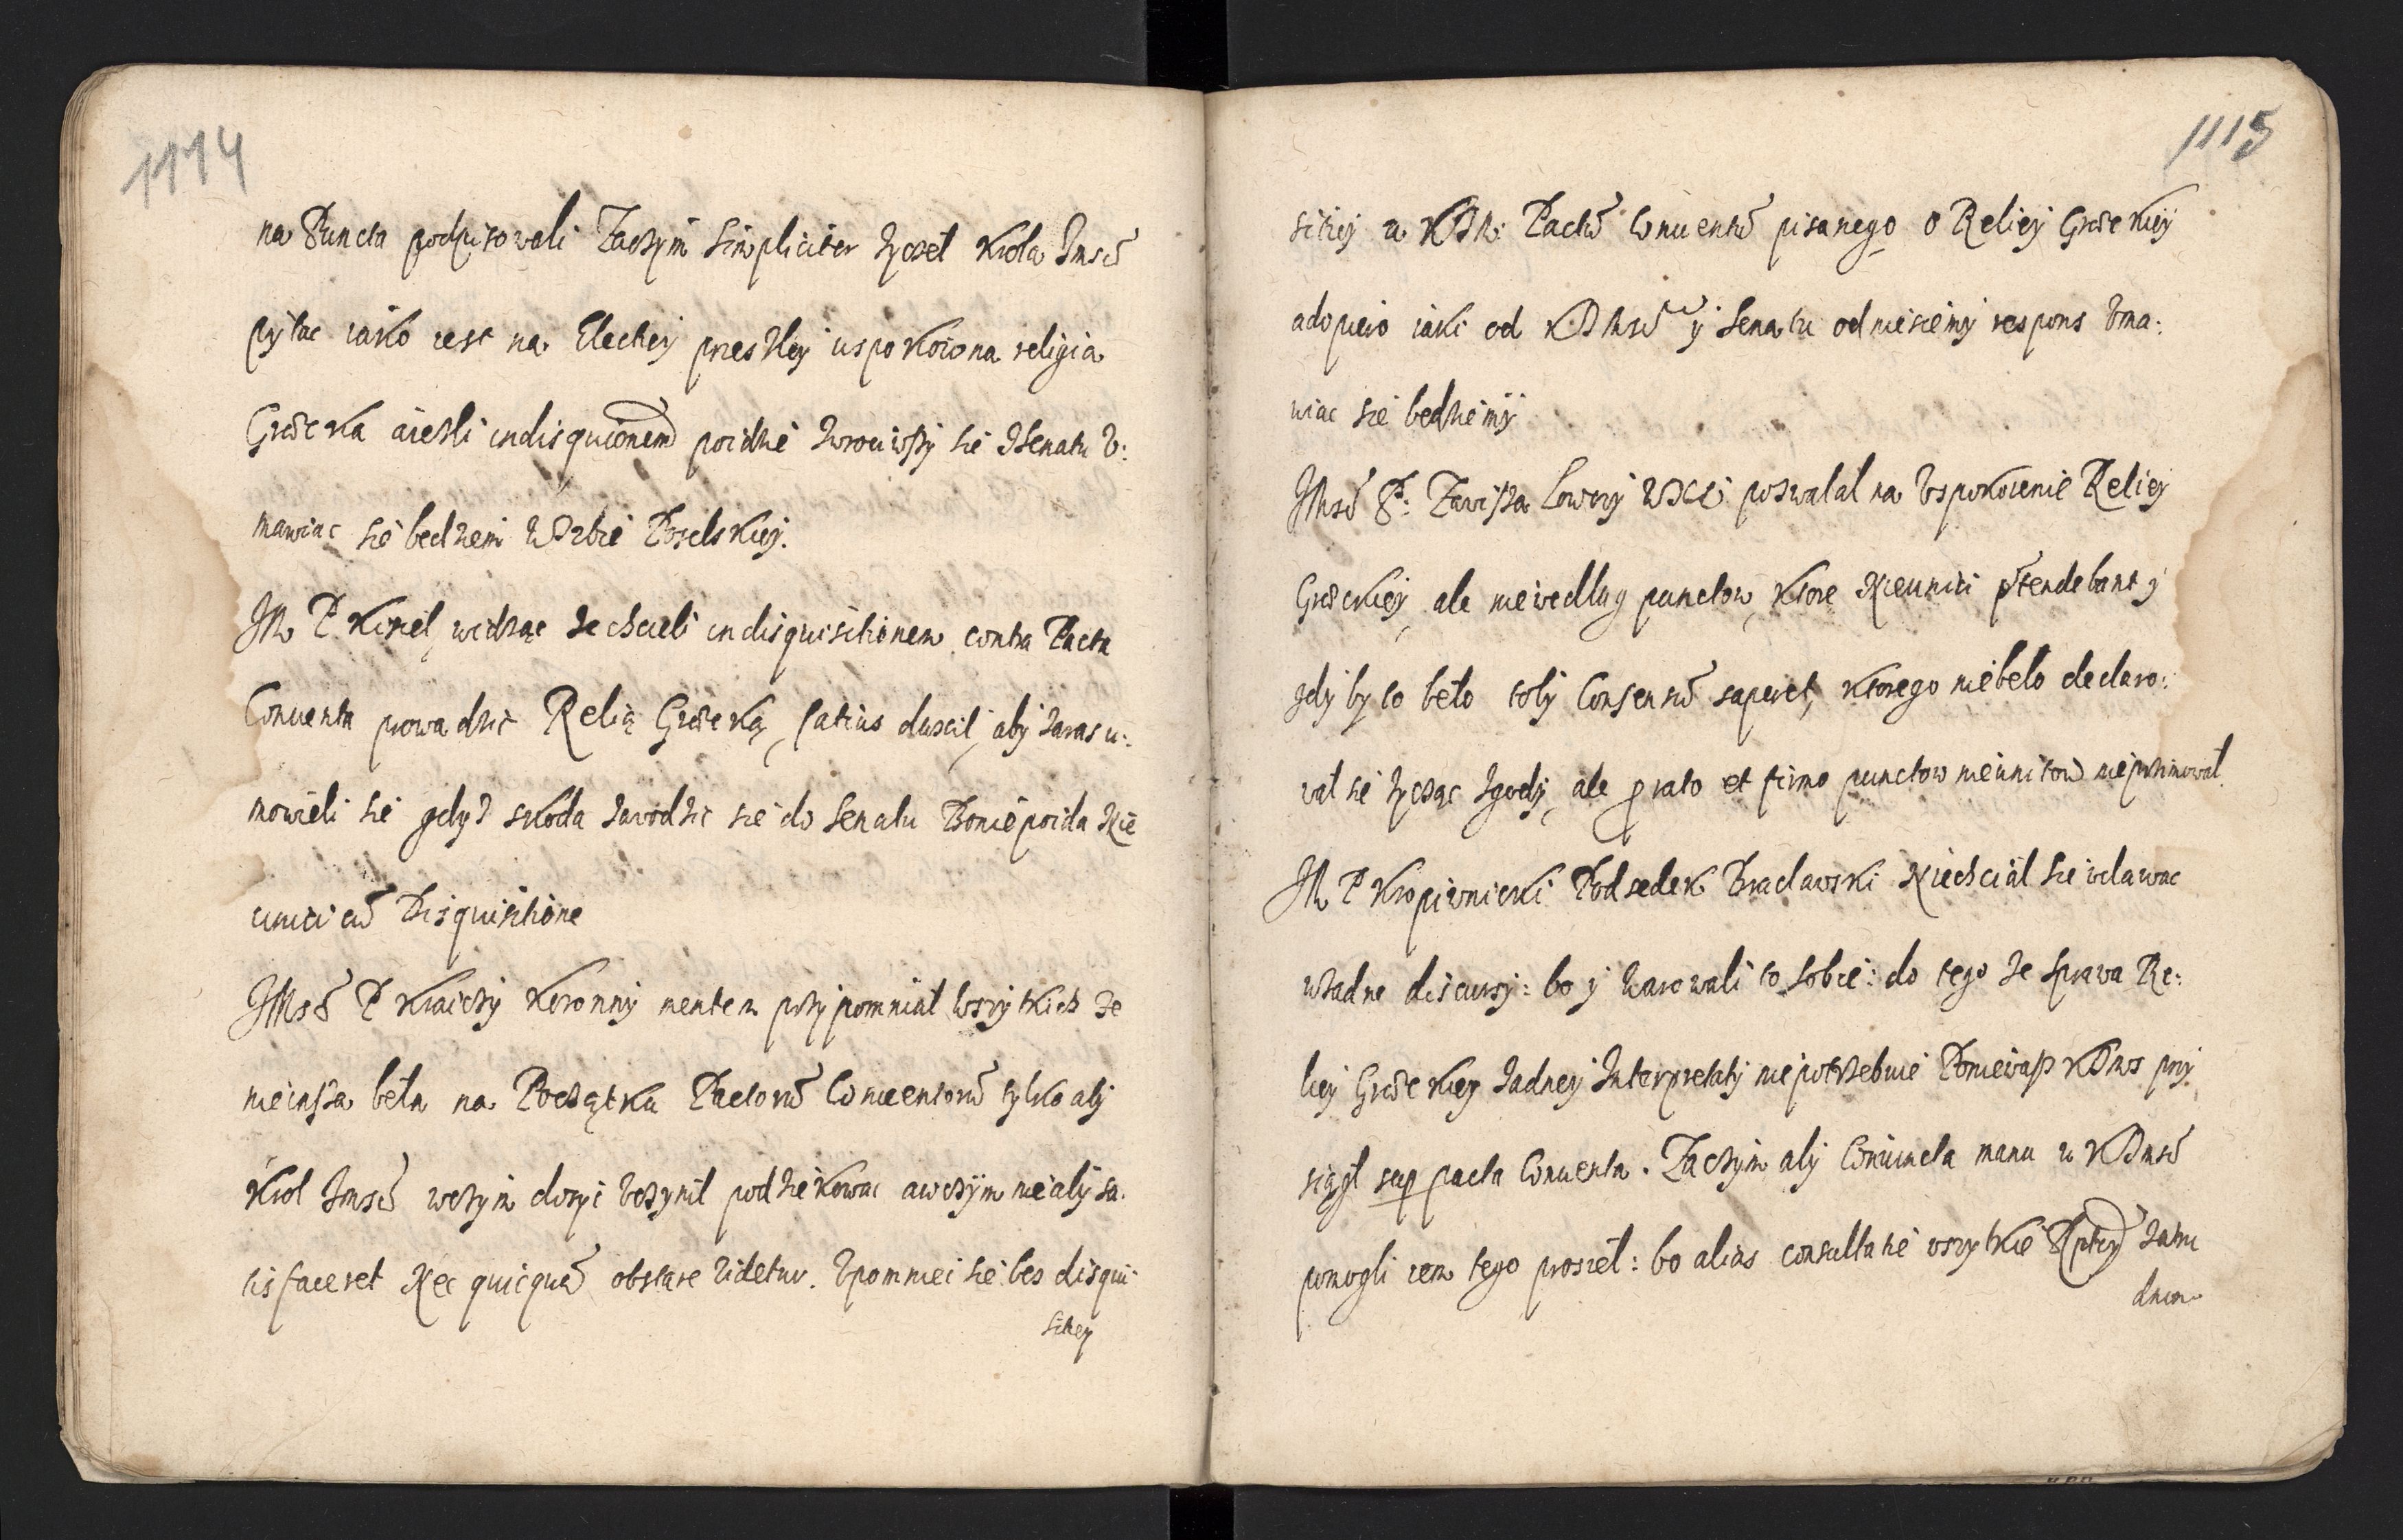 1114
na Puncta podpisowali Zaczym simpliciter zyczel Krola Jmsci
pytac iako iest na Electiey przeszłey uspokoiona religia
Grecka aiezli indisquitionem poidzie zwrociwszy sie zSenatu V:
mawiac sie bedziemi WIzbie Poselskiey.
JM P Kisiel widząc ze chcieli indisquisitionem contra Pacta
Conuenta prowadzic Relią Grecką, satius duxit, aby zaras u:
mowieli sie gdyz skoda zawodzic sie do Senatu Bo niepoida Nie
unici cum Disquisitione
JMsc P Kraiczy Koronny mentem przypomniał wszytkich ze
nieinsza beła na Początku Pactorum Conuentorum tylko aby
Krol Jmsc wczym dosyc Vczynił podziekowac awczym nie aby sa
tis faceret Nec quicquam obstare Videtur. Vpomniec sie bes disqui
sitiey
1115
sitiey u KJM: Pactum Conuentum pisanego o Reliey Greckiey
adopiero iaki od KJMsci y Senatu odniesiemy respons Vma:
wiac sie bedziemy
JMsc P: Zawisza Łowczy WXLi pozwalał na Vspokoienie Reliey
Greckiey, ale niewedlug punctow, ktore Nieunici prtendebant y
gdy by to beło toby Consensum saperet, ktorego niebeło declaro:
wał sie zycząc zgody, ale p rato et firmo punctow nieunitow nieprzimował
JM P Kropiwnicki Podsedek Braclawski Niechciał sie wdawac
wżadne discursy: bo y warowali to sobie: do tego ze sprawa Re:
liey Greckiey zadney Interpretaty niepotrzebuie Poniewasz KJms przy
siągł sup pacta Conuenta. Zaczym aby Coniuncta manu u KJmsci
pomogli iem tego prosieł: bo alias consultatie wszytkie Rptcy zatru
dnion